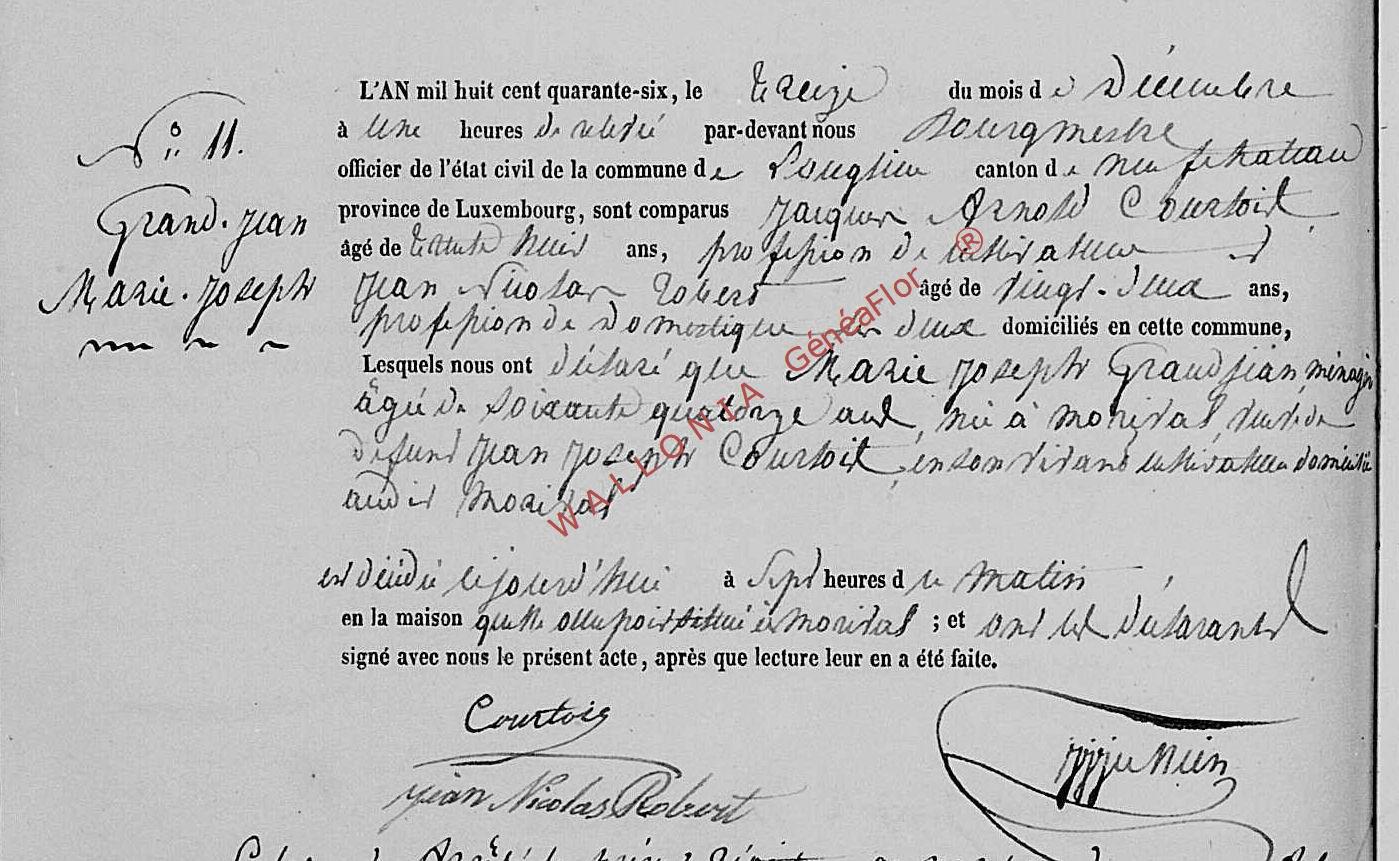 L'AN mil huit cent quarante-six, le treize du mois de Décembre
à une heures de relevé par-devant nous Bourgmestre
N° 11.
officier de l'état civil de la commune de Longlier canton de neufchateau
Grand-jean
province de Luxembourg, sont comparus Jacques Arnold Courtois
âgé de trente huit ans, profession de cultivateur et
Marie-Joseph
Jean Nicolas Robert âgé de vingt-deux ans,
profession de domestique les deux domiciliés en cette commune,
Lesquels nous ont déclaré que Marie Joseph Grandjean, ménagère
âgée de soixante quatorze ans, née à morival, veuve de
défunt Jean Joseph Courtois, en son vivant cultivateur domicilié
audit Morival
est décédée cejourd'hui à Sept heures du matin
en la maison quelle occupoit située à morival ; et ont les déclarants
signé avec nous le présent acte, après que lecture leur en a été faite.
Courtois
Jean Nicolas Robert
WALLONIA GénéaFlor ®